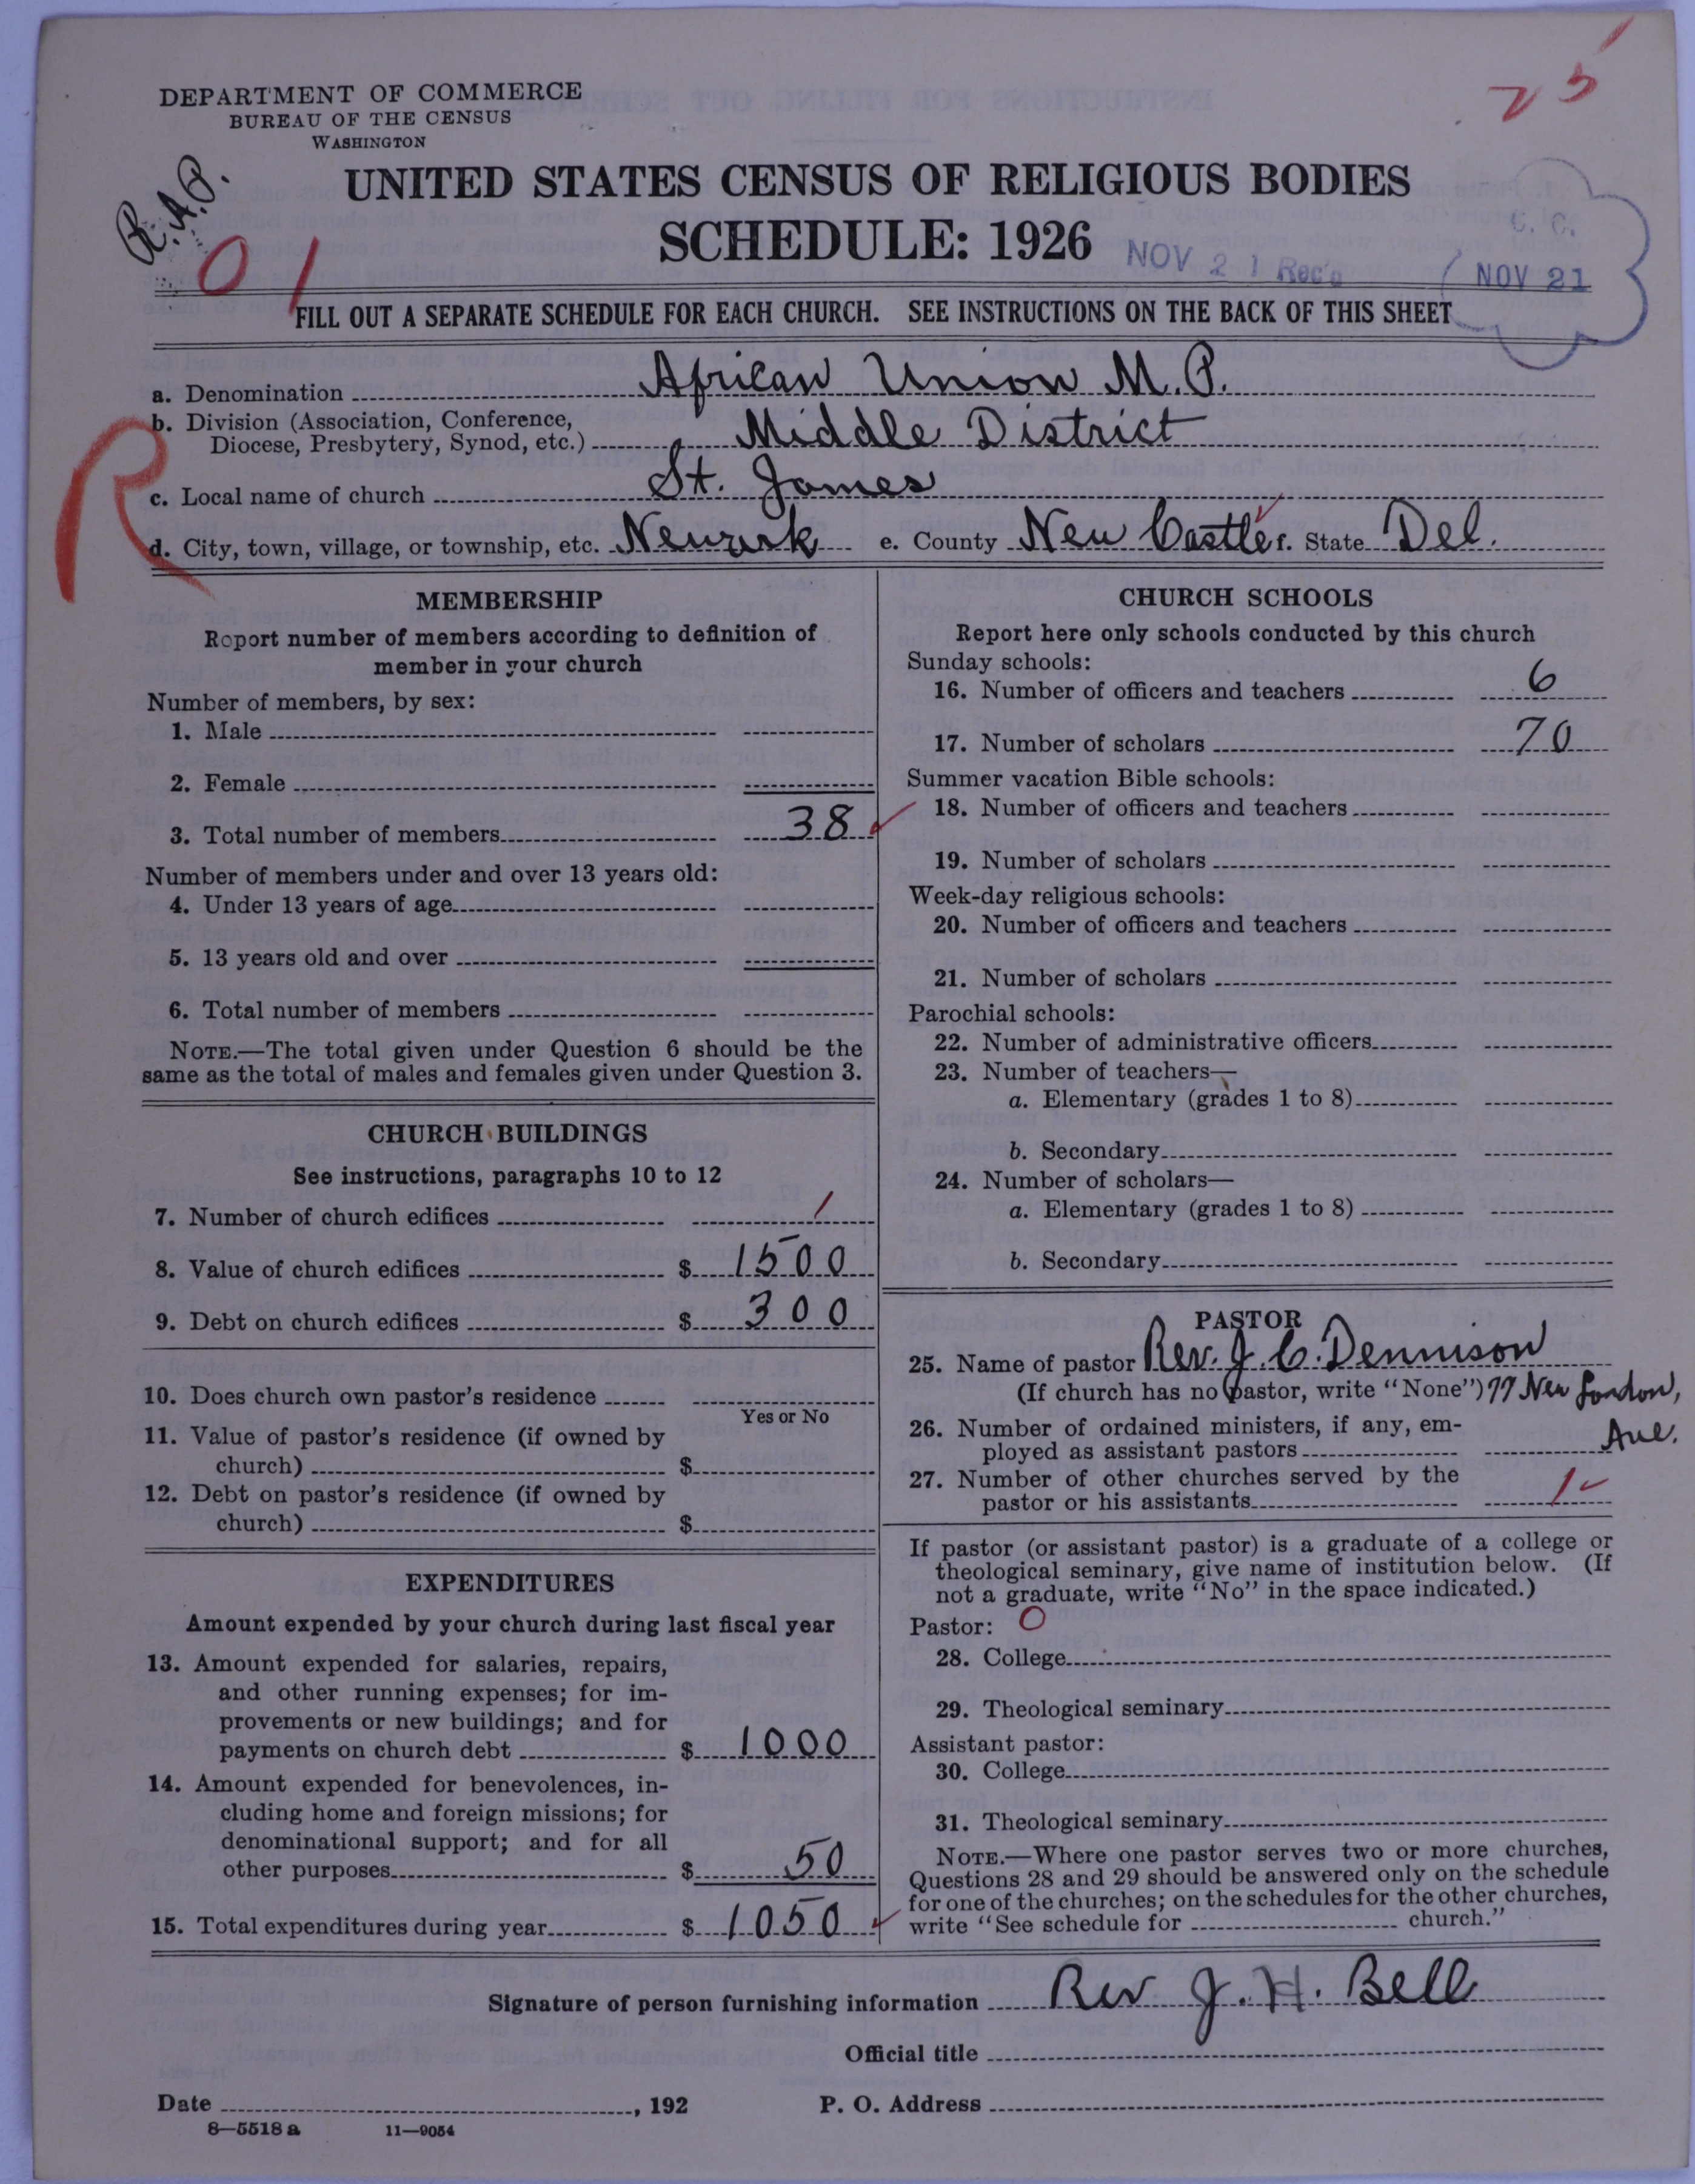 25
DEPARTMENT OF COMMERCE
BUREAU OF THE CENSUS
WASHINGTON
R.A.P.
UNITED STATES CENSUS OF RELIGIOUS BODIES
SCHEDULE: 1926
NOV 21 Rec'd
C. C.
NOV 21
01
FILL OUT A SEPARATE SCHEDULE FOR EACH CHURCH. SEE INSTRUCTIONS ON THE BACK OF THIS SHEET
R
a. Denomination African Union M.P.
b. Division (Association, Conference,
Diocese, Presbytery, Synod, etc.) Middle District
c. Local name of church St. James
d. City, town, village, or township, etc. Newark e. County New Castle f. State Del.
MEMBERSHIP
Report number of members according to definition of
member in your church
Number of members, by sex:
1. Male
2. Female
3. Total number of members 38
Number of members under and over 13 years old:
4. Under 13 years of age
5. 13 years old and over
6. Total number of members
NOTE.—The total given under Question 6 should be the
same as the total of males and females given under Question 3.
CHURCH BUILDINGS
See instructions, paragraphs 10 to 12
7. Number of church edifices 1
8. Value of church edifices $ 1500
9. Debt on church edifices $ 300
10. Does church own pastor's residence
Yes or No
11. Value of pastor's residence (if owned by
church) $
12. Debt on pastor's residence (if owned by
church) $
EXPENDITURES
Amount expended by your church during last fiscal year
13. Amount expended for salaries, repairs,
and other running expenses; for im-
provements or new buildings; and for
payments on church debt $ 1000
14. Amount expended for benevolences, in-
cluding home and foreign missions; for
denominational support; and for all
other purposes $ 50
15. Total expenditures during year $ 1050
CHURCH SCHOOLS
Report here only schools conducted by this church
Sunday schools:
16. Number of officers and teachers 6
17. Number of scholars 70
Summer vacation Bible schools:
18. Number of officers and teachers
19. Number of scholars
Week-day religious schools:
20. Number of officers and teachers
21. Number of scholars
Parochial schools:
22. Number of administrative officers
23. Number of teachers—
a. Elementary (grades 1 to 8)
b. Secondary
24. Number of scholars—
a. Elementary (grades 1 to 8)
b. Secondary
PASTOR
25. Name of pastor Rev. J. C. Dennison
(If church has no pastor, write "None") 77 New London,
Ave.
26. Number of ordained ministers, if any, em-
ployed as assistant pastors
27. Number of other churches served by the
pastor or his assistants 1
If pastor (or assistant pastor) is a graduate of a college or
theological seminary, give name of institution below. (If
not a graduate, write "No" in the space indicated.)
Pastor: O
28. College
29. Theological seminary
Assistant pastor:
30. College
31. Theological seminary
NOTE.—Where one pastor serves two or more churches,
Questions 28 and 29 should be answered only on the schedule
for one of the churches; on the schedules for the other churches,
write "See schedule for church."
Signature of person furnishing information Rev J. H. Bell
Official title
Date , 192 P. O. Address
8—5518 a 11—9054